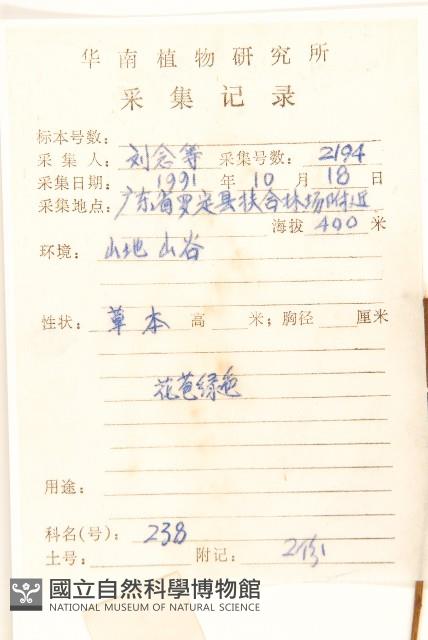 华南植物研究所
采集记录
标本号数：
采集人：刘念等 采集号数：2194
采集日期：1991 年 10 月 18 日
采集地点：广东省罗定县扶合林场附近
海拔 400 米
环境：山地 山谷
性状：草本 高 米；胸径 厘米
花苞绿色
用途：
科名(号)：238
土号： 附记：2份
國立自然科學博物館
NATIONAL MUSEUM OF NATURAL SCIENCE